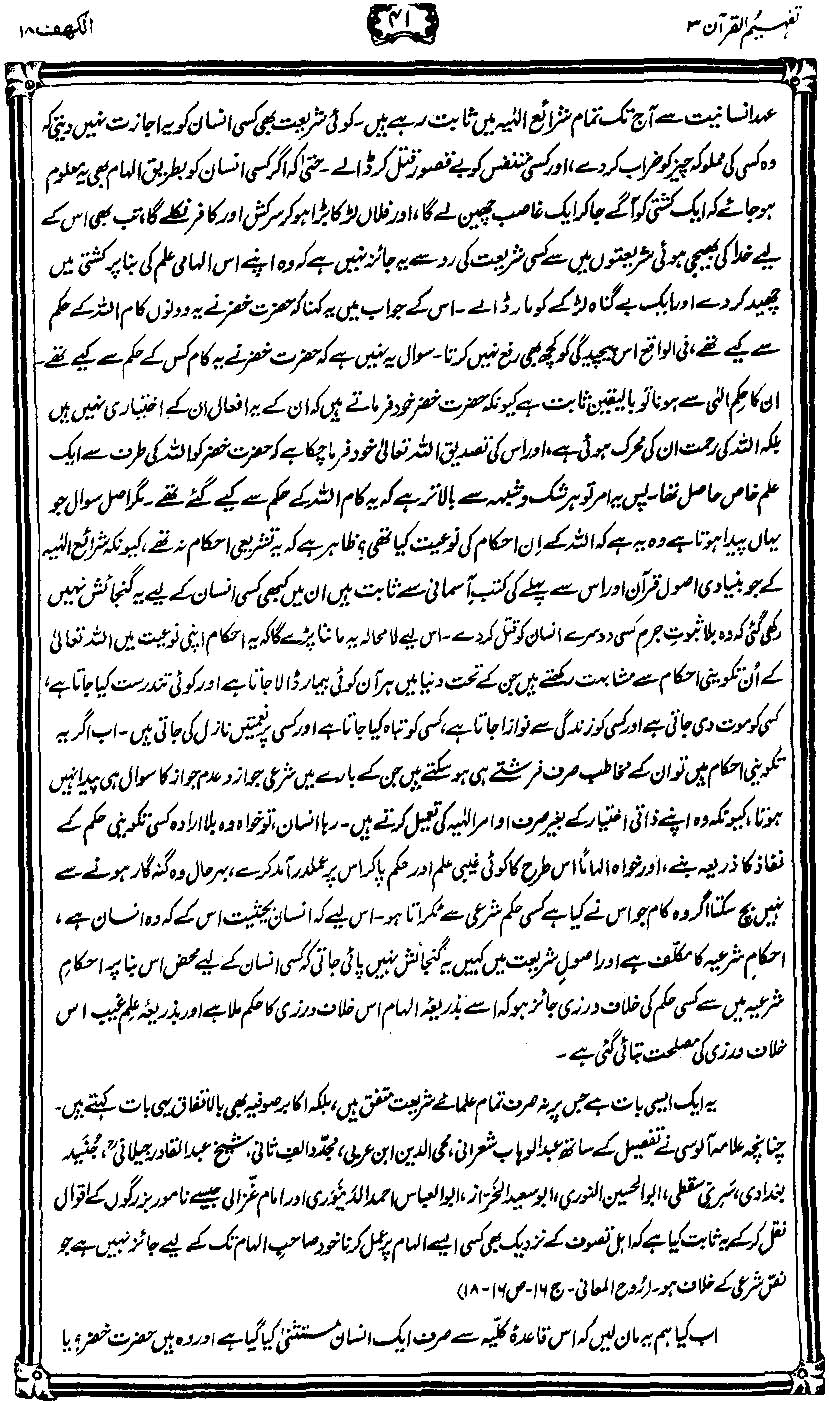 تفہیم القرآن ۳
۴۱
الکھف ۱۸
عہد انسانیت سے آج تک تمام شرائع الٰہیہ میں ثابت رہے ہیں۔ کوئی شریعت بھی کسی انسان کو یہ اجازت نہیں دیتی کہ
وہ کسی کی مملوکہ چیز کو خراب کر دے، اور کسی متنفس کو بے قصور قتل کر ڈالے۔ حتیٰ کہ اگر کسی انسان کو بطریق الہام بھی یہ معلوم
ہو جائے کہ ایک کشتی کو آگے جا کر ایک غاصب چھین لے گا، اور فلاں لڑکا بڑا ہو کر سرکش اور کافر نکلے گا، تب بھی اس کے
لیے خدا کی بھیجی ہوئی شریعتوں میں سے کسی شریعت کی رو سے یہ جائز نہیں ہے کہ وہ اپنے اس الہامی علم کی بنا پر کشتی میں
چھید کر دے اور ایک بے گناہ لڑکے کو مار ڈالے۔ اس کے جواب میں یہ کہنا کہ حضرت خضر نے یہ دونوں کام اللہ کے حکم
سے کیے تھے، فی الواقع اس پیچیدگی کو کچھ بھی رفع نہیں کرتا۔ سوال یہ نہیں ہے کہ حضرت خضر نے یہ کام کس کے حکم سے کیے تھے۔
ان کا حکم الٰہی سے ہونا تو بالیقین ثابت ہے کیونکہ حضرت خضر خود فرماتے ہیں کہ ان کے یہ افعال ان کے اختیاری نہیں ہیں
بلکہ اللہ کی رحمت ان کی محرک ہوئی ہے، اور اس کی تصدیق اللہ تعالیٰ خود فرما چکا ہے کہ حضرت خضر کو اللہ کی طرف سے ایک
علم خاص حاصل تھا۔ پس یہ امر تو ہر شک و شبہہ سے بالاتر ہے کہ یہ کام اللہ کے حکم سے کیے گئے تھے۔ مگر اصل سوال جو
یہاں پیدا ہوتا ہے وہ یہ ہے کہ اللہ کے اِن احکام کی نوعیت کیا تھی؟ ظاہر ہے کہ یہ تشریعی احکام نہ تھے، کیونکہ شرائع الٰہیہ
کے جو بنیادی اصول قرآن اور اس سے پہلے کی کتبِ آسمانی سے ثابت ہیں ان میں کبھی کسی انسان کے لیے یہ گنجائش نہیں
رکھی گئی کہ وہ بلا ثبوتِ جرم کسی دوسرے انسان کو قتل کر دے۔ اس لیے لا محالہ یہ ماننا پڑے گا کہ یہ احکام اپنی نوعیت میں اللہ تعالیٰ
کے اُن تکوینی احکام سے مشابہت رکھتے ہیں جن کے تحت دنیا میں ہر آن کوئی بیمار ڈالا جاتا ہے اور کوئی تندرست کیا جاتا ہے،
کسی کو موت دی جاتی ہے اور کسی کو زندگی سے نوازا جاتا ہے، کسی کو تباہ کیا جاتا ہے اور کسی پر نعمتیں نازل کی جاتی ہیں۔ اب اگر یہ
تکوینی احکام ہیں تو ان کے مخاطب صرف فرشتے ہی ہو سکتے ہیں جن کے بارے میں شرعی جواز و عدم جواز کا سوال ہی پیدا نہیں
ہوتا، کیونکہ وہ اپنے ذاتی اختیار کے بغیر صرف اوامر الٰہیہ کی تعمیل کرتے ہیں۔ رہا انسان، تو خواہ وہ بلا ارادہ کسی تکوینی حکم کے
نفاذ کا ذریعہ بنے، اور خواہ الہاماً اس طرح کا کوئی غیبی علم اور حکم پا کر اس پر عملدرآمد کرے، بہرحال وہ گنہگار ہونے سے
نہیں بچ سکتا اگر وہ کام جو اس نے کیا ہے کسی حکم شرعی سے ٹکراتا ہو۔ اس لیے کہ انسان بحیثیت اس کے کہ وہ انسان ہے،
احکامِ شرعیہ کا مکلّف ہے اور اصولِ شریعت میں کہیں یہ گنجائش نہیں پائی جاتی کہ کسی انسان کے لیے محض اس بنا پر احکامِ
شرعیہ میں سے کسی حکم کی خلاف ورزی جائز ہو کہ اسے بذریعۂ الہام اس خلاف ورزی کا حکم ملا ہے اور بذریعۂ علم غیب اس
خلاف ورزی کی مصلحت بتائی گئی ہے۔
یہ ایک ایسی بات ہے جس پر نہ صرف تمام علمائے شریعت متفق ہیں، بلکہ اکابر صوفیہ بھی بالاتفاق یہی بات کہتے ہیں۔
چنانچہ علامہ آلوسی نے تفصیل کے ساتھ عبدالوہاب شعرانی، محی الدین ابن عربی، مجدّد الف ثانی، شیخ عبدالقادر جیلانیؒ، جُنَید
بغدادی، سَرِی سَقَطی، ابوالحسین النوری، ابوسعید الخَرّاز، ابوالعباس احمد الدِّینَوَری اور امام غزالی جیسے نامور بزرگوں کے اقوال
نقل کر کے یہ ثابت کیا ہے کہ اہل تصوف کے نزدیک بھی کسی ایسے الہام پر عمل کرنا خود صاحبِ الہام تک کے لیے جائز نہیں ہے جو
نصّ شرعی کے خلاف ہو۔ (رُوح المعانی۔ ج ۱۶۔ ص ۱۶-۱۸)
اب کیا ہم یہ مان لیں کہ اس قاعدۂ کلّیہ سے صرف ایک انسان مستثنیٰ کیا گیا ہے اور وہ ہیں حضرت خضر؟ یا